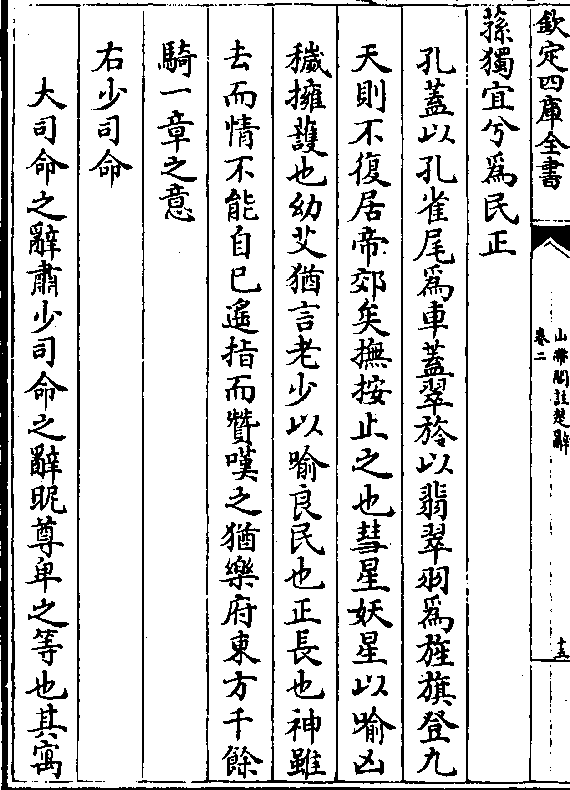 欽定四庫全書
山帶閣註楚辭
卷二
十五
蓀獨宜兮爲民正
孔蓋以孔雀尾爲車蓋翠旍以翡翠羽爲旌旗登九
天則不復居帝郊矣撫按止之也彗星妖星以喻凶
穢擁䕶也幼艾猶言老少以喻良民也正長也神雖
去而情不能自已遙指而贊嘆之猶樂府東方千餘
騎一章之意
右少司命
大司命之辭肅少司命之辭昵尊卑之等也其寓